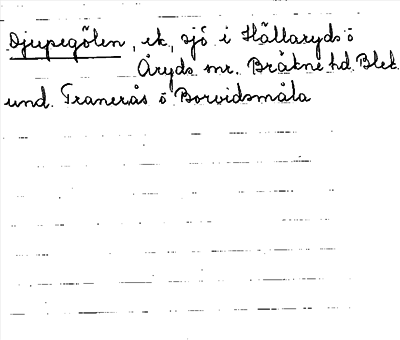 Djupegölen, ek, sjö i Hällaryds o
Åryds snr. Bräkne hd. Blek.
und. Tranerås o Borvidsmåla